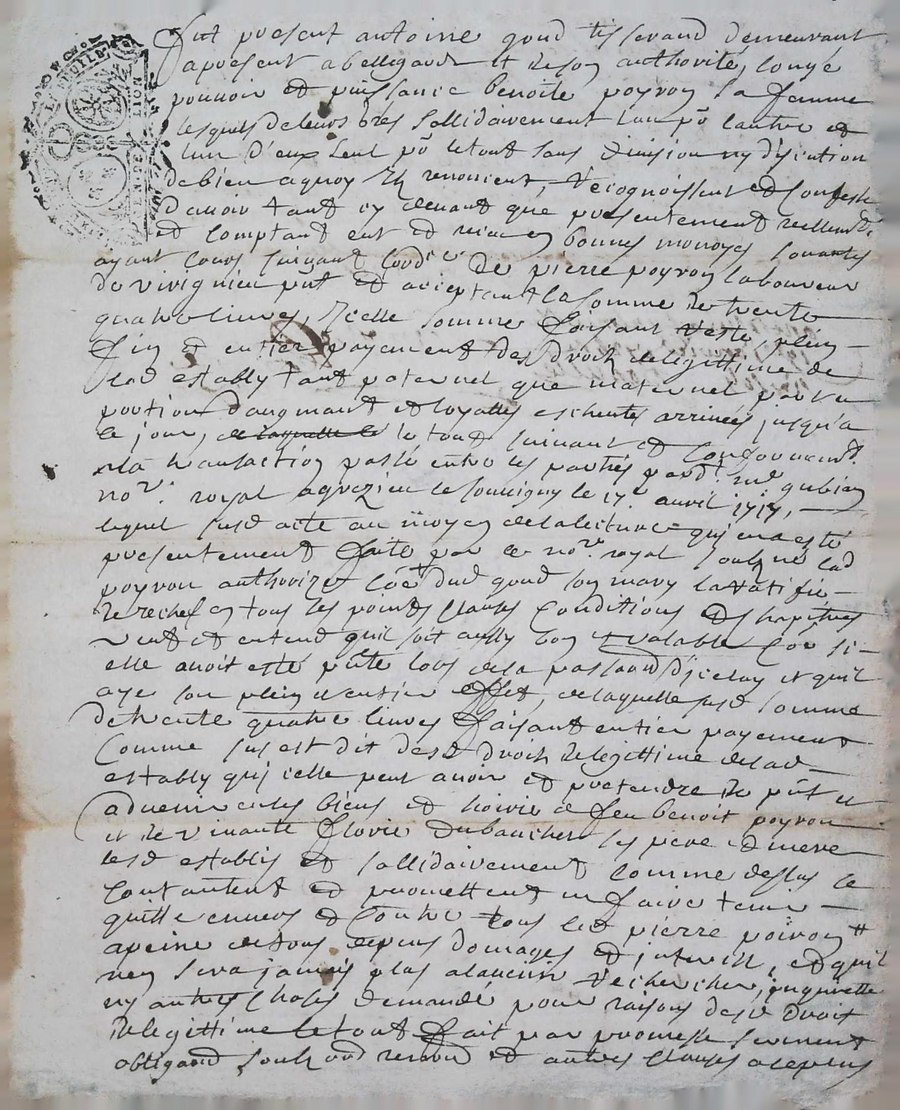 fut present antoine goud tisserand demeurant
apresent a bellegarde et de son authorité, congé
pouvoir et puissance benoite peyron sa femme
lesquels de leurs gres sollidairement lun pō lautre et
lun d'eux seul pō letout sans division ny discution
de bien aquoy ils renoncent, recognoissent et confessent
d'avoir tant cy devant que presentement reellemt
et comptant eut et receu en bonnes monoyes
ayant cours suivant lord.ce de pierre peyron laboureur
de virignieu pnt et acceptant la somme de trente
quatre livres, Icelle somme faisant reste, plein
fin et entier payement des droit de legittime de
lad establÿ tant paternel que maternel
portion d'augmant et loyalles escheutes arrivées jusqu'a
ce jour, le tout suivant et conformémt
a la transaction passé entre les parties pard.t me gubian
nore. royal a grezieu le le 17e avril 1717,
lequel susd acte au moyen de la lecture qui en a esté
presentement faite par ce nore royal soubzné lad
peyron authorizé coē dud goud son mary la ratifie
derechef en tous les points clauses conditions et chapitres
veut et entend quil soit aussy bon et valable coē si
elle avoit esté pnte lors de la passaōn d'jceluy et quil
aye son plein et entier effet, de laquelle susd somme
de trente quatre livres faisant entier payement
comme sus est dit desd droit de legittime de lad
establÿ qu'jcelle peut avoir et pretendre de pnt et
advenir es biens et hoirie de feu benoit peyron
et de vivante florie dubanchet ses pere et mere
lesd establis et sollidairement comme dessus se
contentent et promettent en faire tenir
quitte envers et contre tous led pierre peiron
apeine de tous depens domages et interest, et quil
nen sera jamais plus a laucun recherche, inquietté
ny autres choses demandé pour raisons desd droit
delegittime le tout fait par promesse serment
obligaōn soubz renonc et autres clauses acceptées